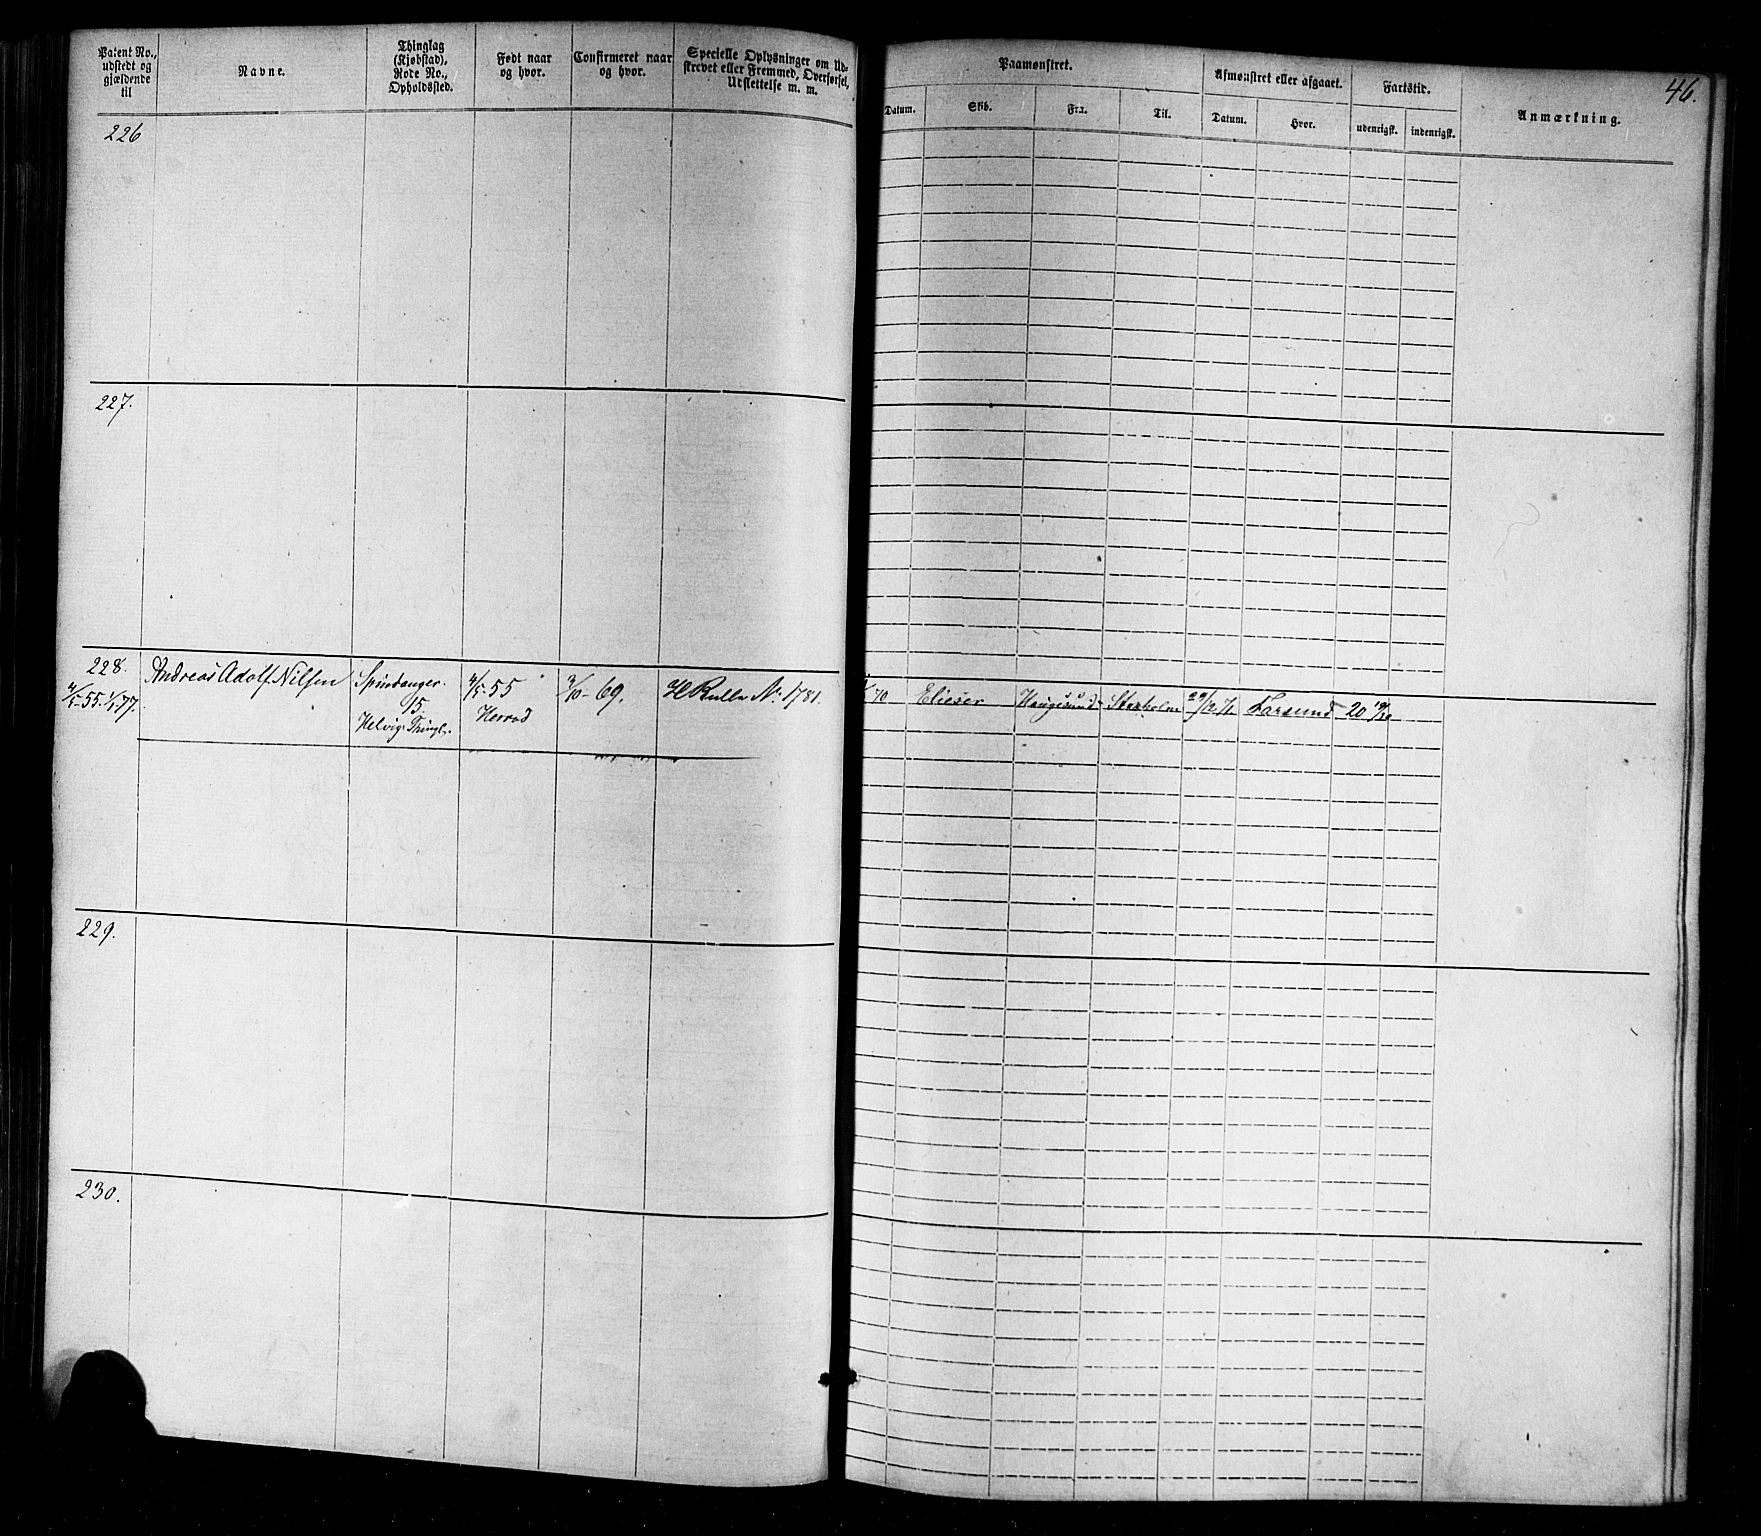 Patent No., udstedt og gjældende til
Navne.
Thinglag (Kjøbstad), Rode No., Opholdssted.
Født naar og hvor.
Confirmeret naar og hvor.
Specielle Oplysninger om Udskrevet eller Fremmed, Overførsel, Udslettelse m. m.
Paamønstret.
Datum.
Skib.
Fra.
Til.
Afmønstret eller afgaaet.
Datum.
Hvor.
Fartstid.
udenrigsk.
indenrigsk.
Anmærkning.
46.
226
227.
228.
Andreas Adolf Nilsen
15.
Helvig Thingl.
55
Herrad
69.
H Rulle No. 1781.
70
Elieser
Haugesund
Stokholm
Farsund
20
229.
230.